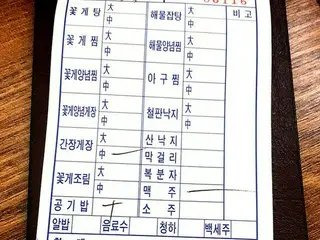 꽃게탕 大 해물잡탕 비고
中
꽃게찜 大 해물양념찜
中
꽃게양념찜 大 아구찜
中
꽃게양념게장 大 철판낙지
中
간장게장 大 산낙지
中 막걸리
꽃게조림 大 복분자
中 맥주
공기밥 소주
알밥 음료수 청하 백세주